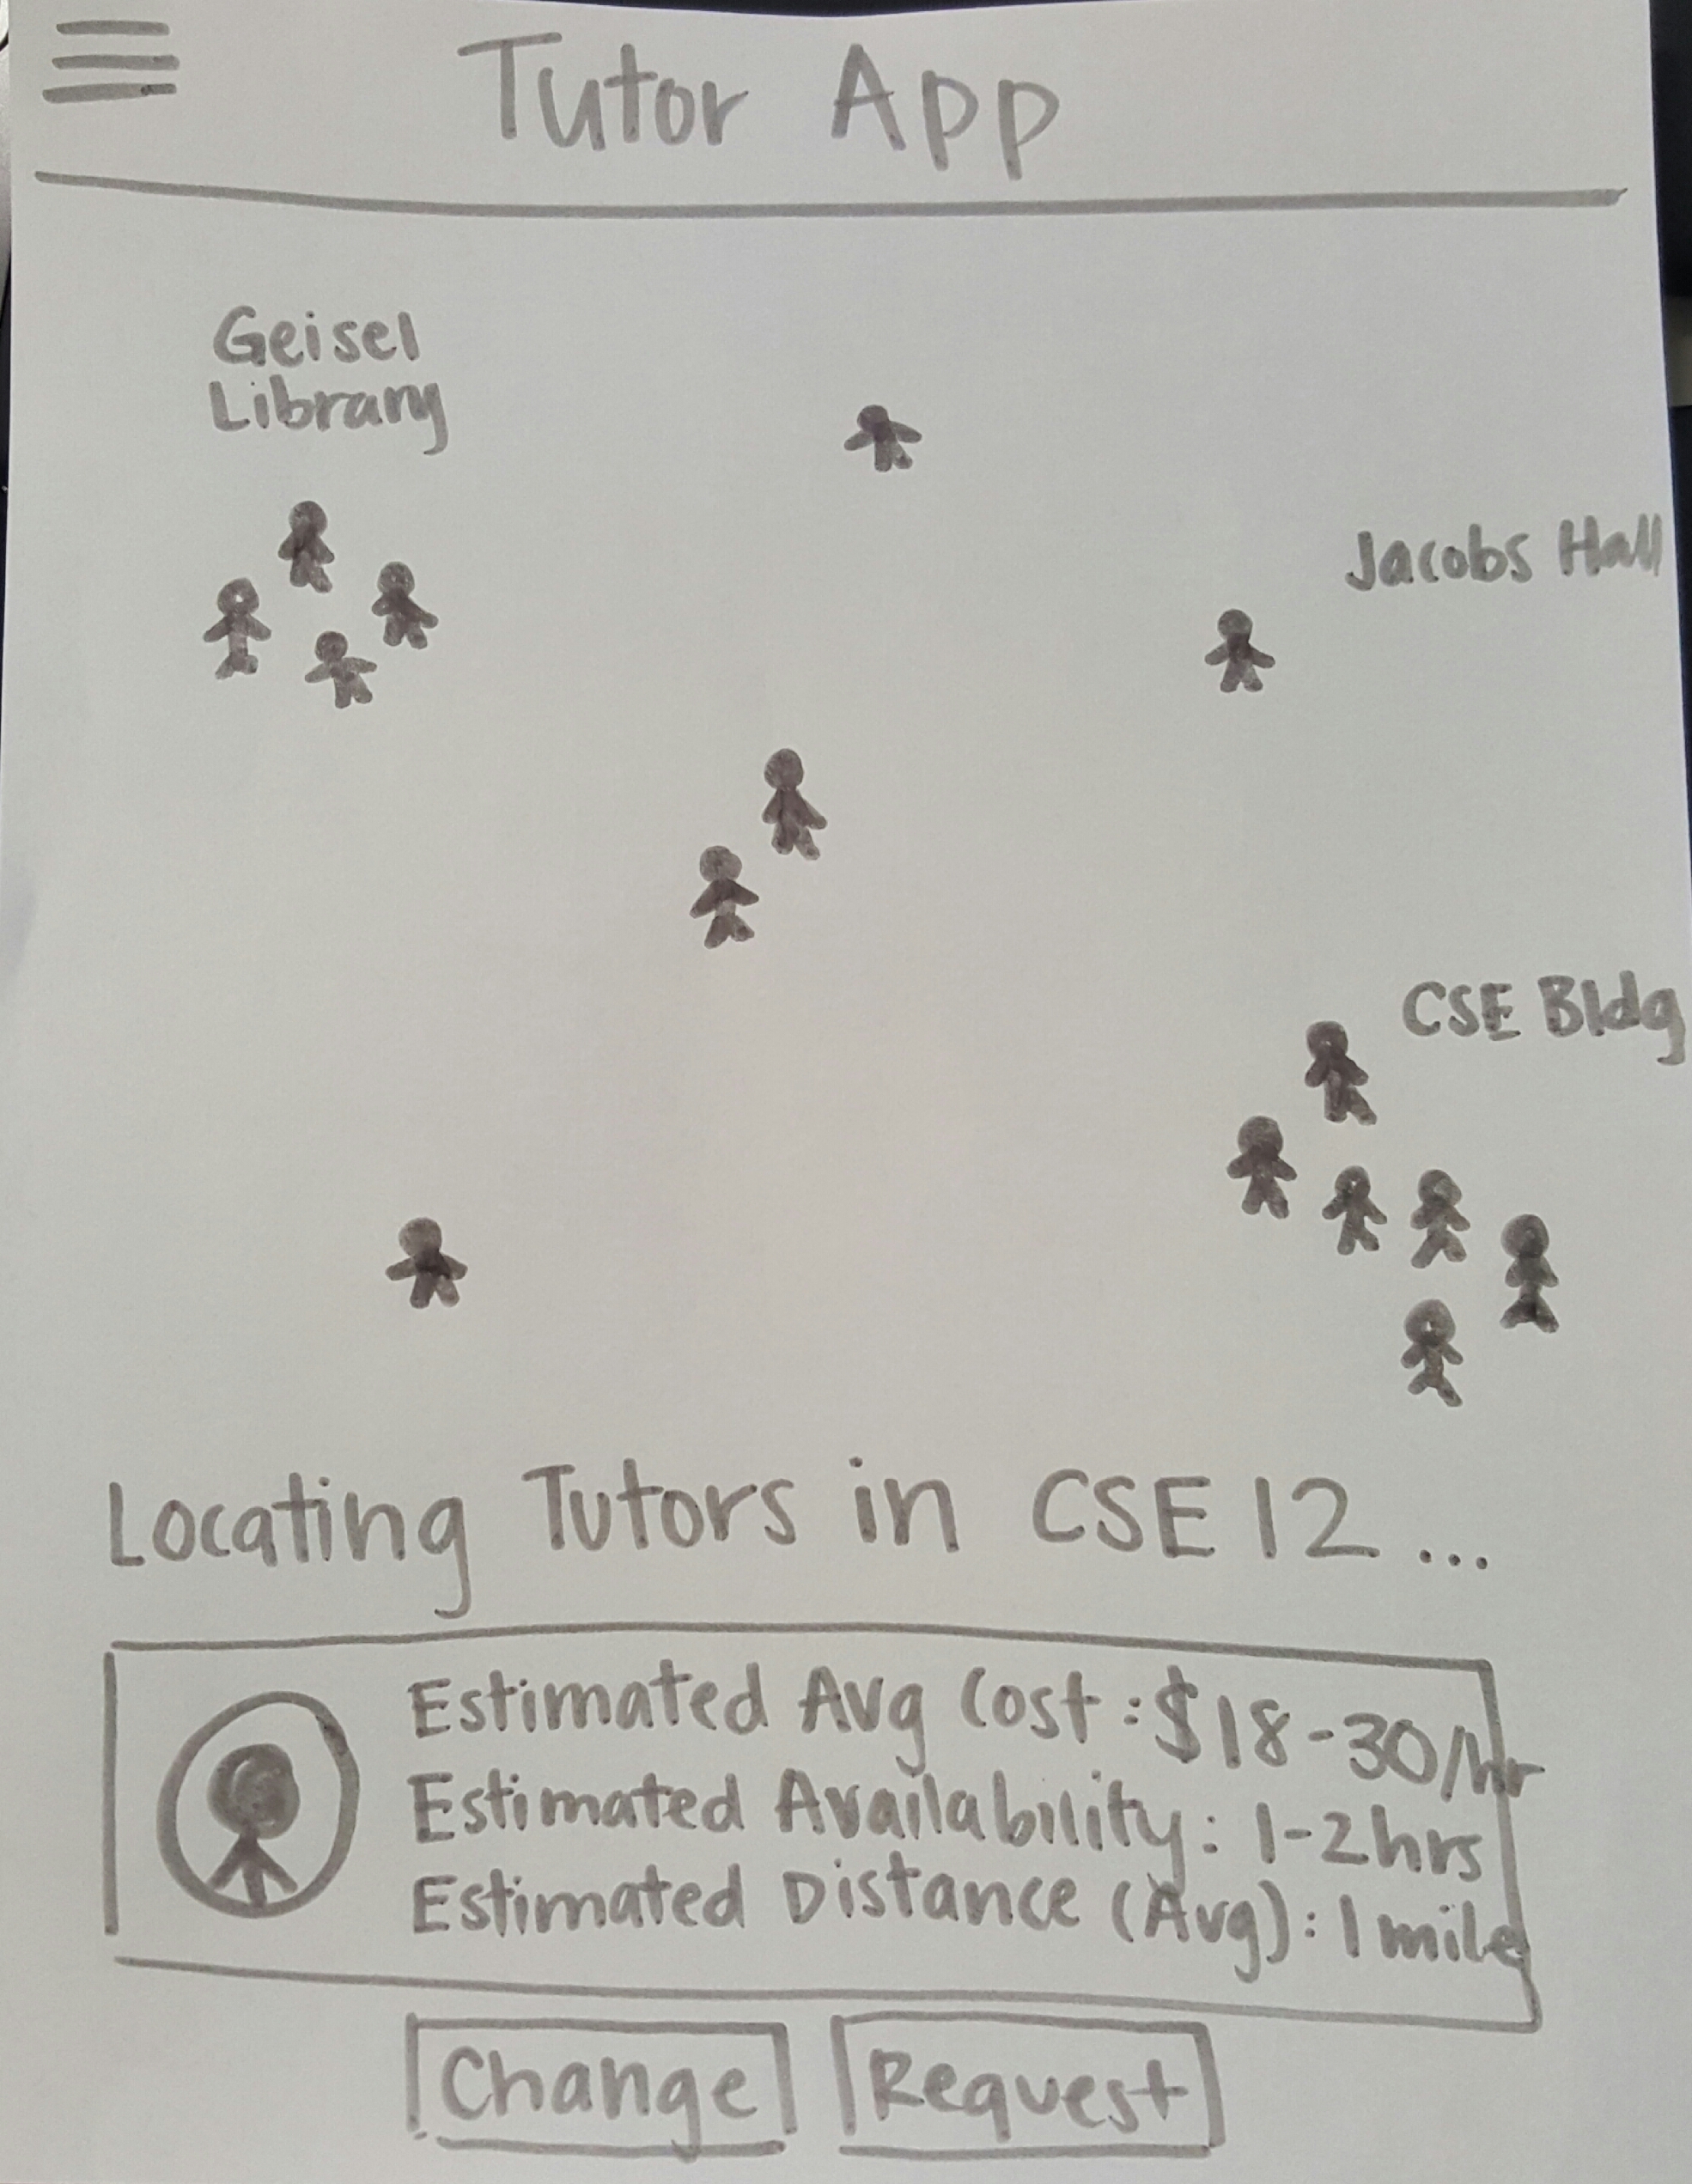 Tutor App
Geisel
Library
Jacobs Hall
CSE Bldg
Locating Tutors in CSE 12...
Estimated Avg Cost: $18-30/hr
Estimated Availability: 1-2hrs
Estimated Distance (Avg): 1 mile
Change Request